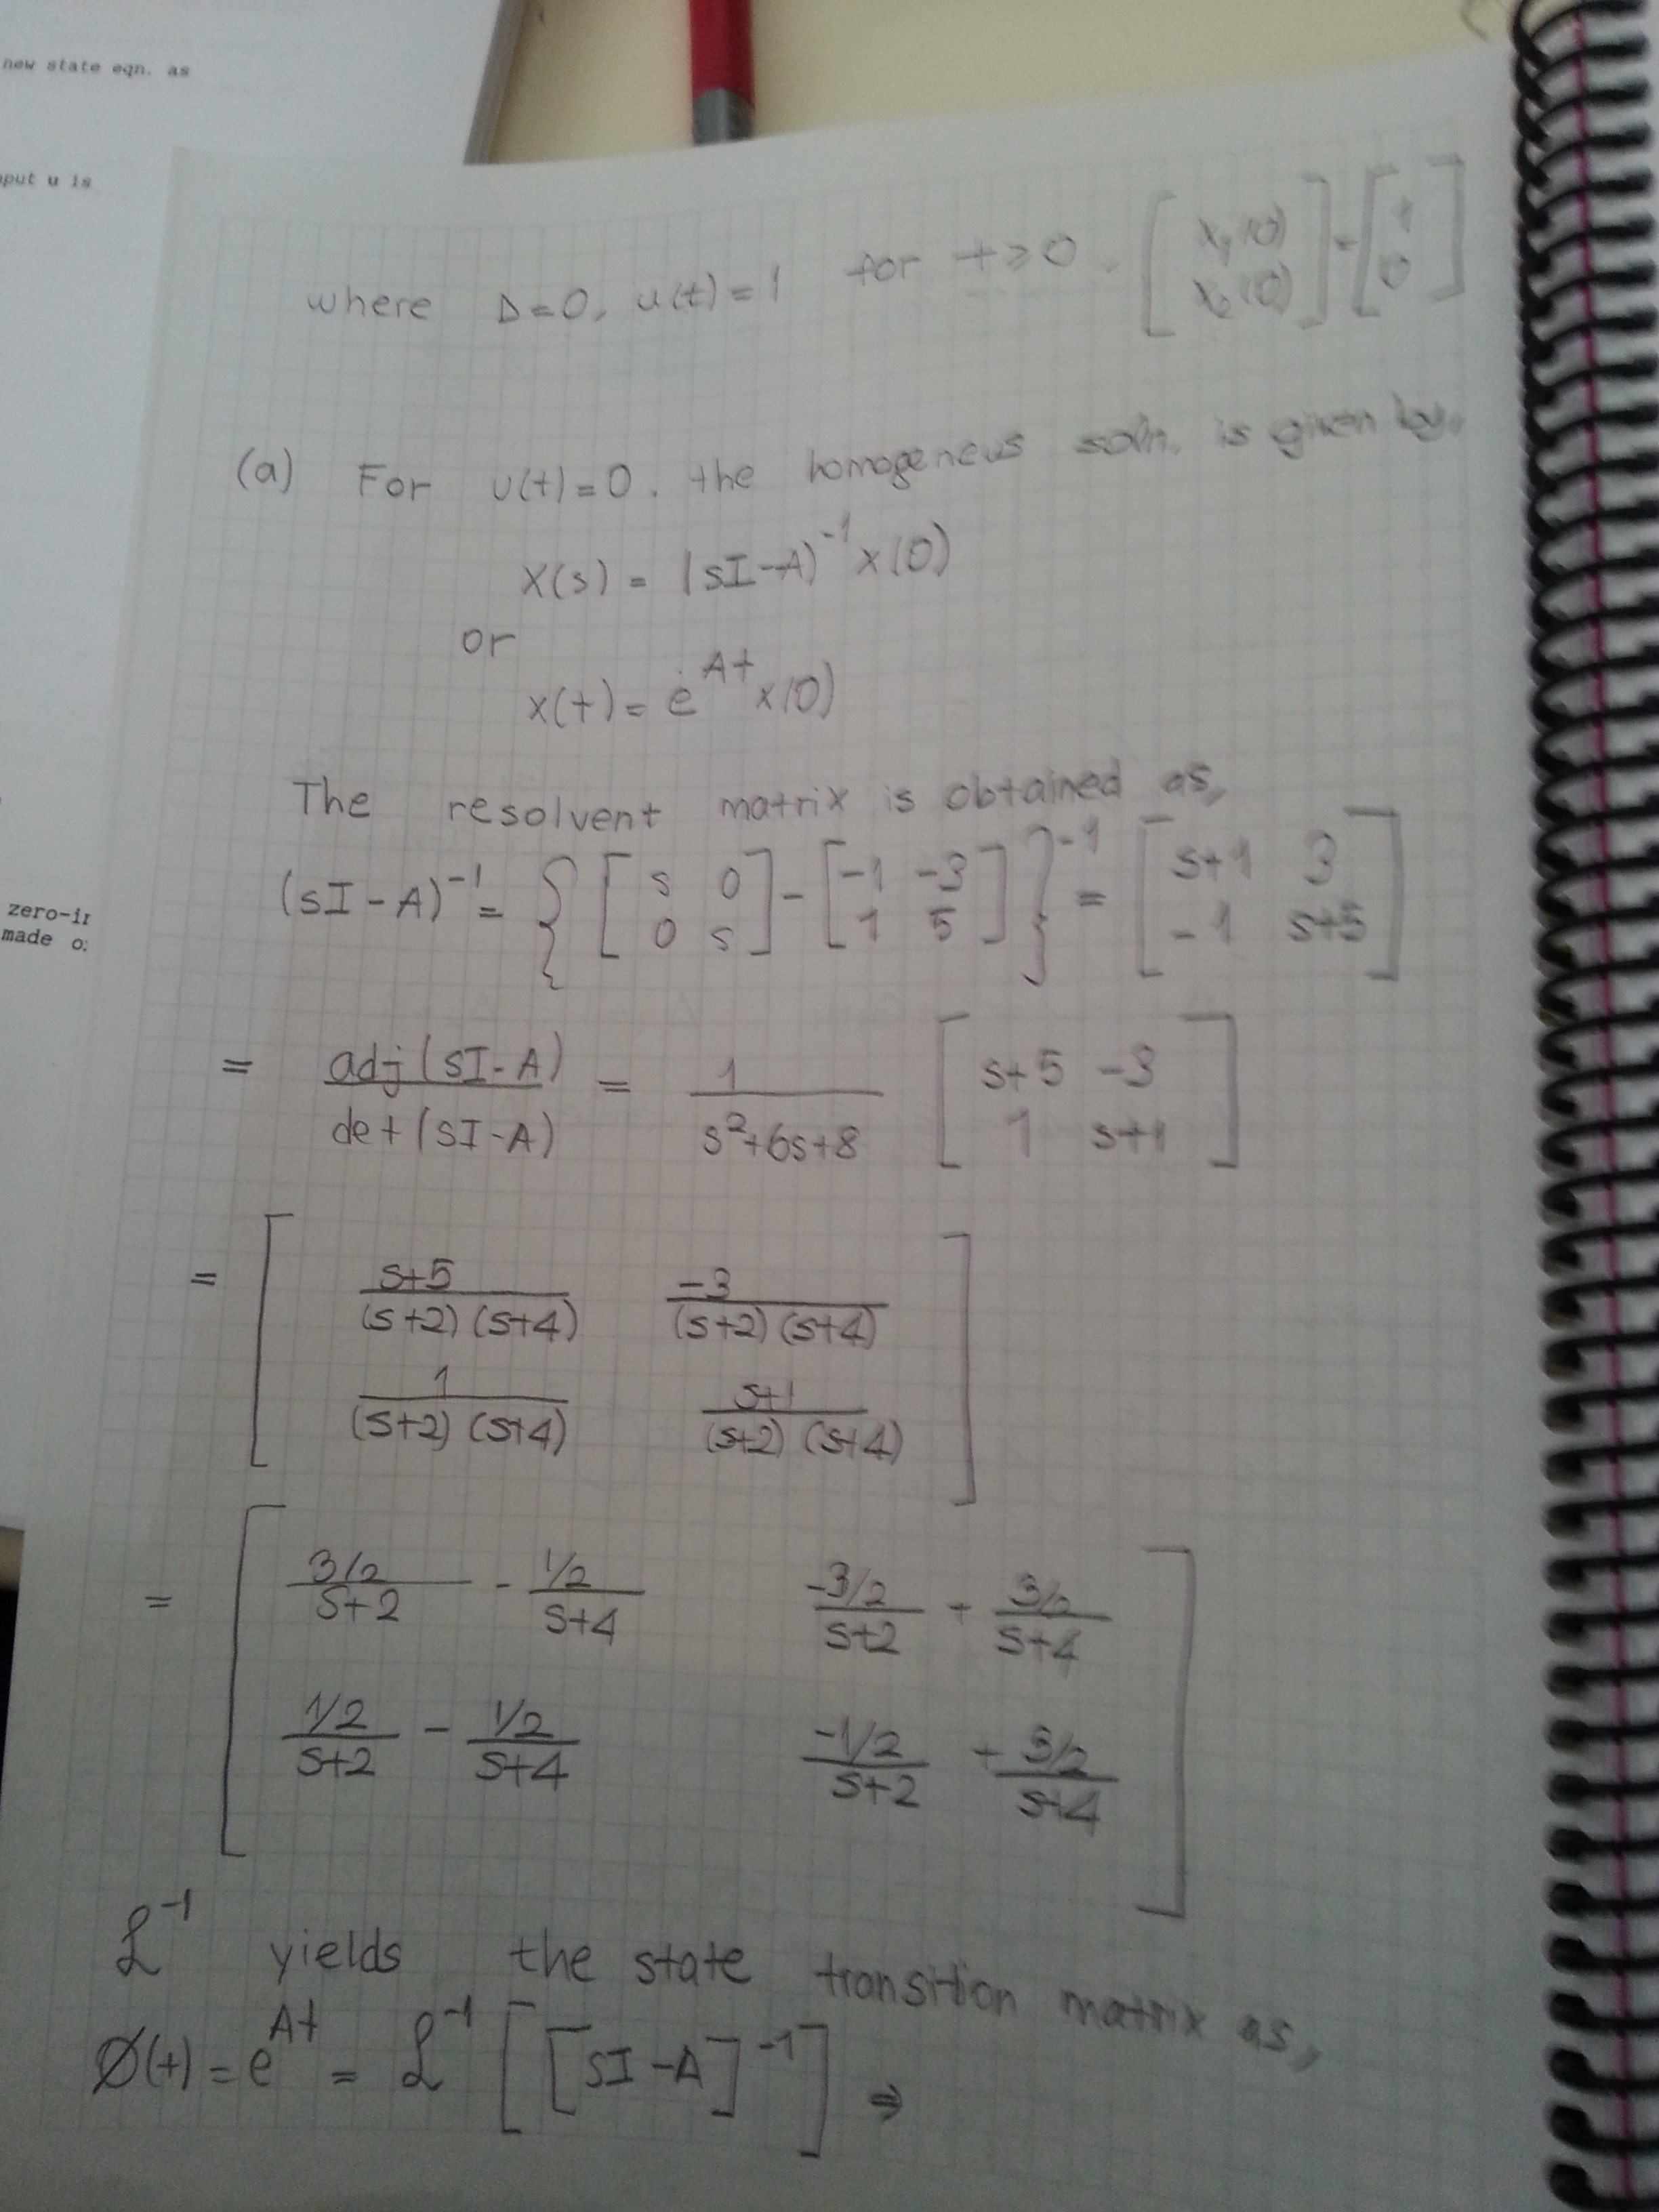 new state eqn. as
nput u is
zero-in
made o:
where D=0, u(t)=1 for t≥0, [x₁(0) x₂(0)] = [1 0]
(a) For u(t)=0, the homogeneus soln. is given by,
X(s) = (sI-A)⁻¹ x(0)
or
x(t) = e^At x(0)
The resolvent matrix is obtained as,
(sI-A)⁻¹ = { [s 0; 0 s] - [-1 -3; 1 5] }⁻¹ = [s+1 3; -1 s+5]
= adj(sI-A) / det(sI-A) = 1 / s²+6s+8 [s+5 -3; 1 s+1]
= [ s+5 / (s+2)(s+4) -3 / (s+2)(s+4)
1 / (s+2)(s+4) s+1 / (s+2)(s+4) ]
= [ 3/2 / s+2 - 1/2 / s+4 -3/2 / s+2 + 3/2 / s+4
1/2 / s+2 - 1/2 / s+4 -1/2 / s+2 + 3/2 / s+4 ]
ℒ⁻¹ yields the state transition matrix as,
Ø(t) = e^At = ℒ⁻¹ [ [sI-A]⁻¹ ] ⇒